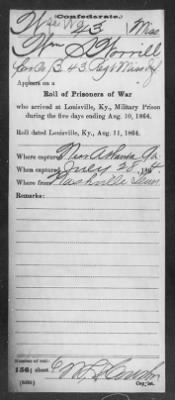 (Confederate.)
43 Miss
Wm S Worrill
Co. B 43 Regt Miss Inf
Appears on a
Roll of Prisoners of War
who arrived at Louisville, Ky., Military Prison
during the five days ending Aug. 10, 1864.
Roll dated Louisville, Ky., Aug. 11, 1864.
Where captured Near Atlanta Ga
When captured July 28, 1864.
Where from Nashville Tenn
Remarks:
Number of roll:
156; sheet
Copyist.